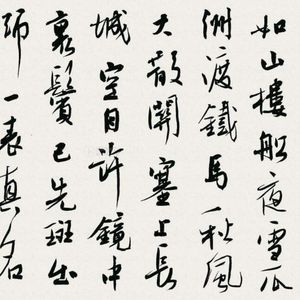 如山樓船夜雪瓜
洲渡鐵馬秋風
大散關塞上長
城空自許鏡中
衰鬢已先斑出
師一表真名